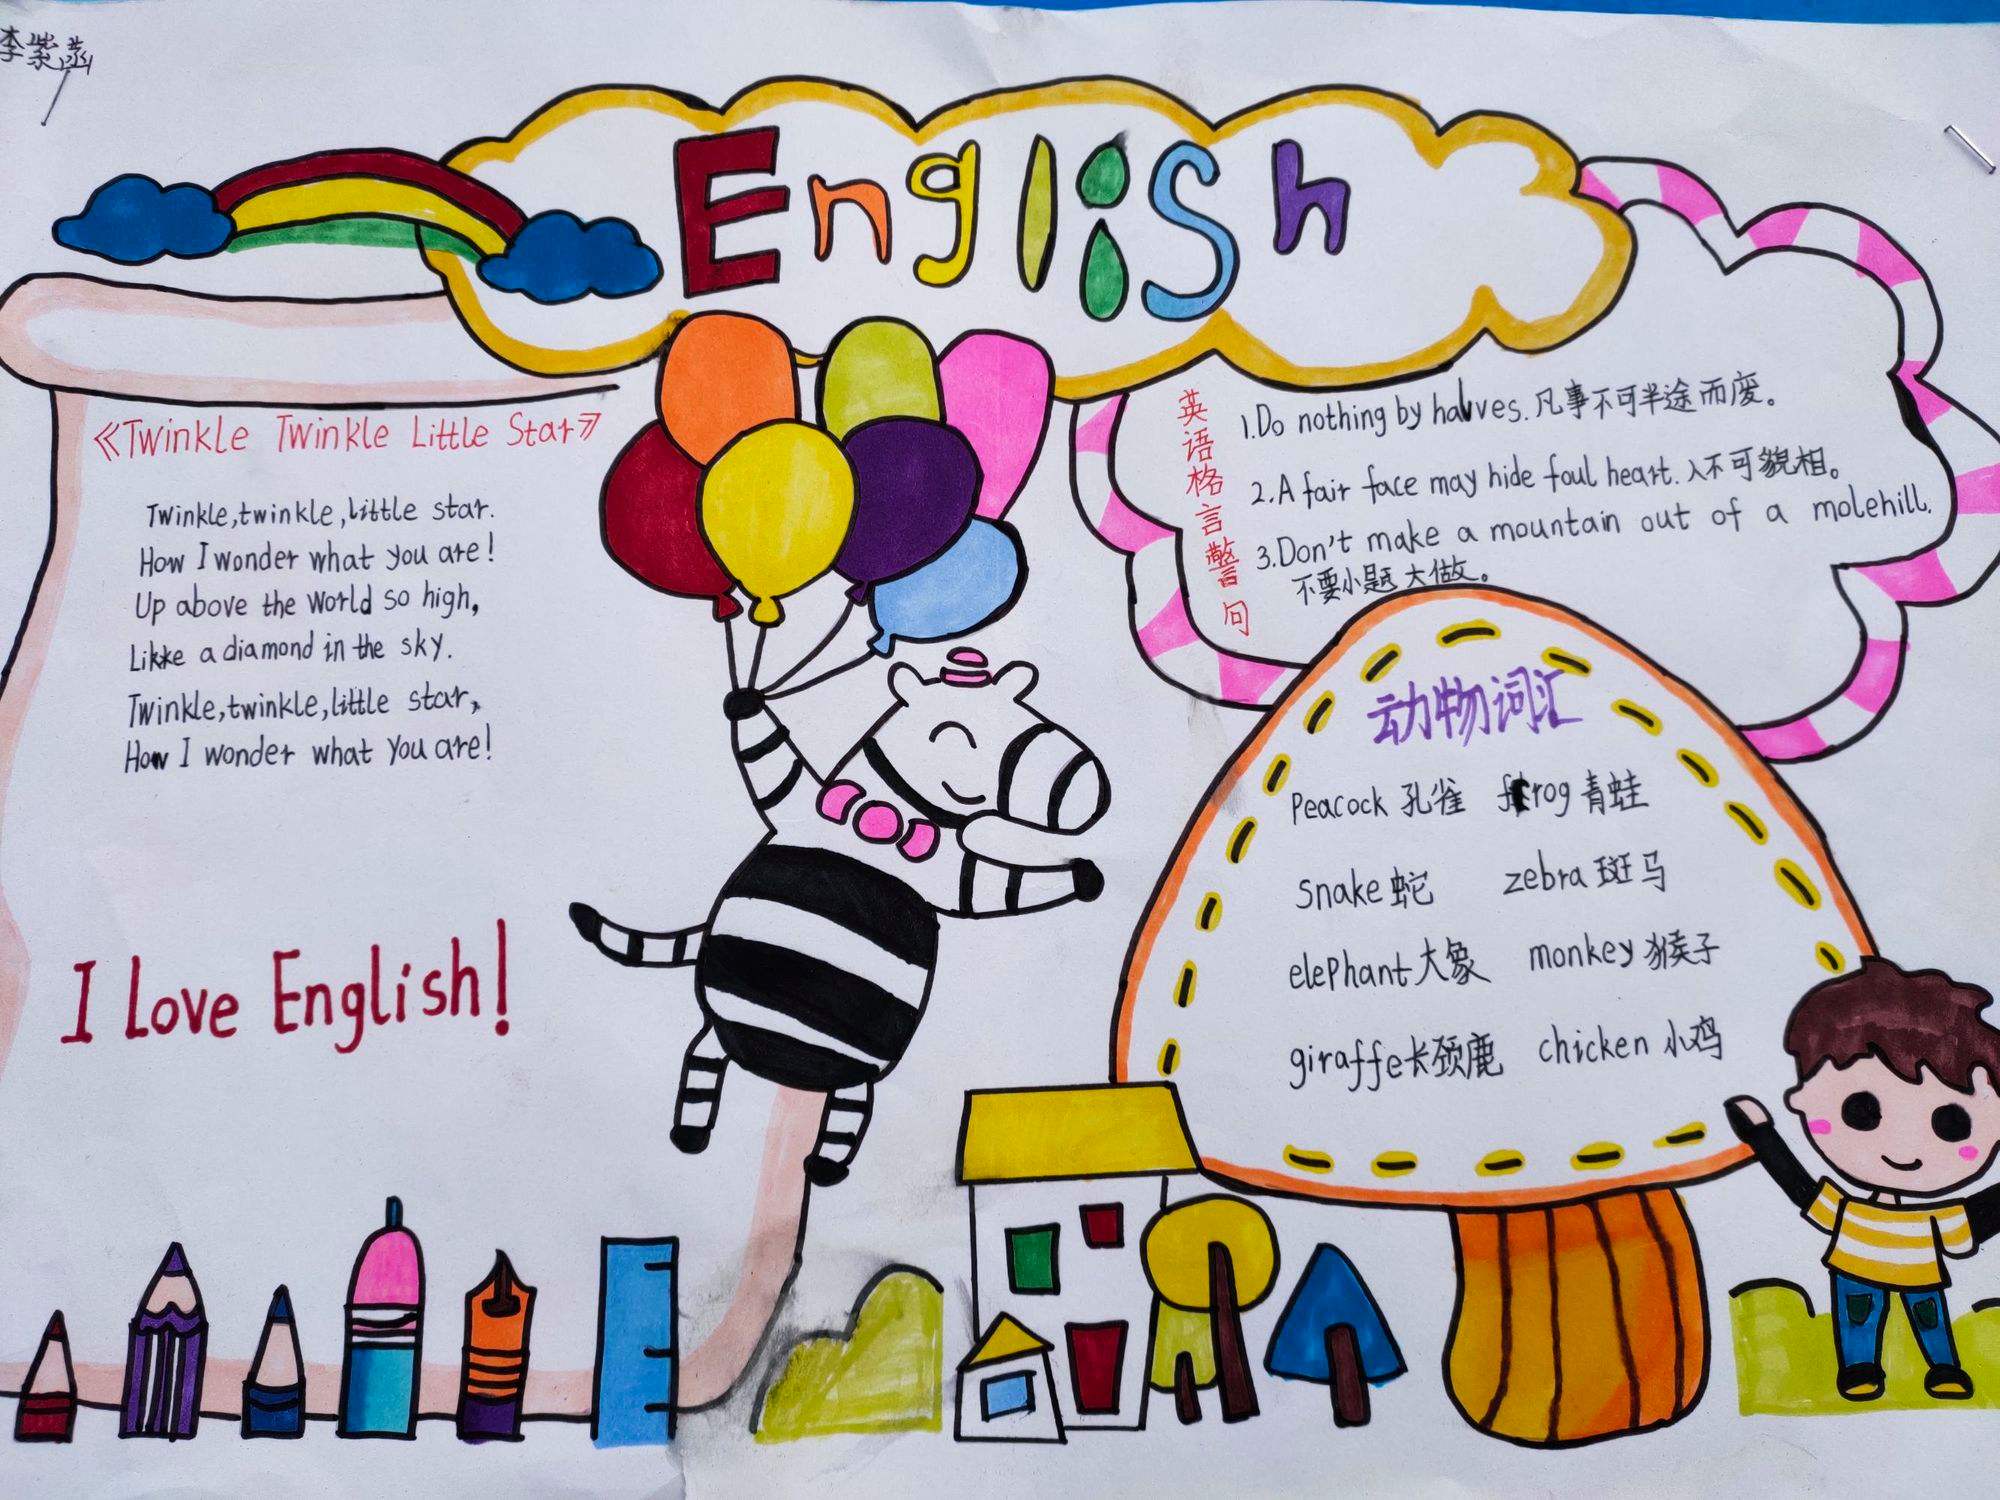 李紫涵
English
《Twinkle Twinkle Little Star》
Twinkle,twinkle,little star.
How I wonder what you are!
Up above the world so high,
Likke a diamond in the sky.
Twinkle,twinkle,little star,
How I wonder what you are!
I Love English!
英语格言警句
1.Do nothing by halves.凡事不可半途而废。
2.A fair face may hide foul heart.人不可貌相。
3.Don't make a mountain out of a molehill.
不要小题大做。
动物词汇
Peacock 孔雀 frog 青蛙
snake 蛇 zebra 斑马
elephant 大象 monkey 猴子
giraffe 长颈鹿 chicken 小鸡